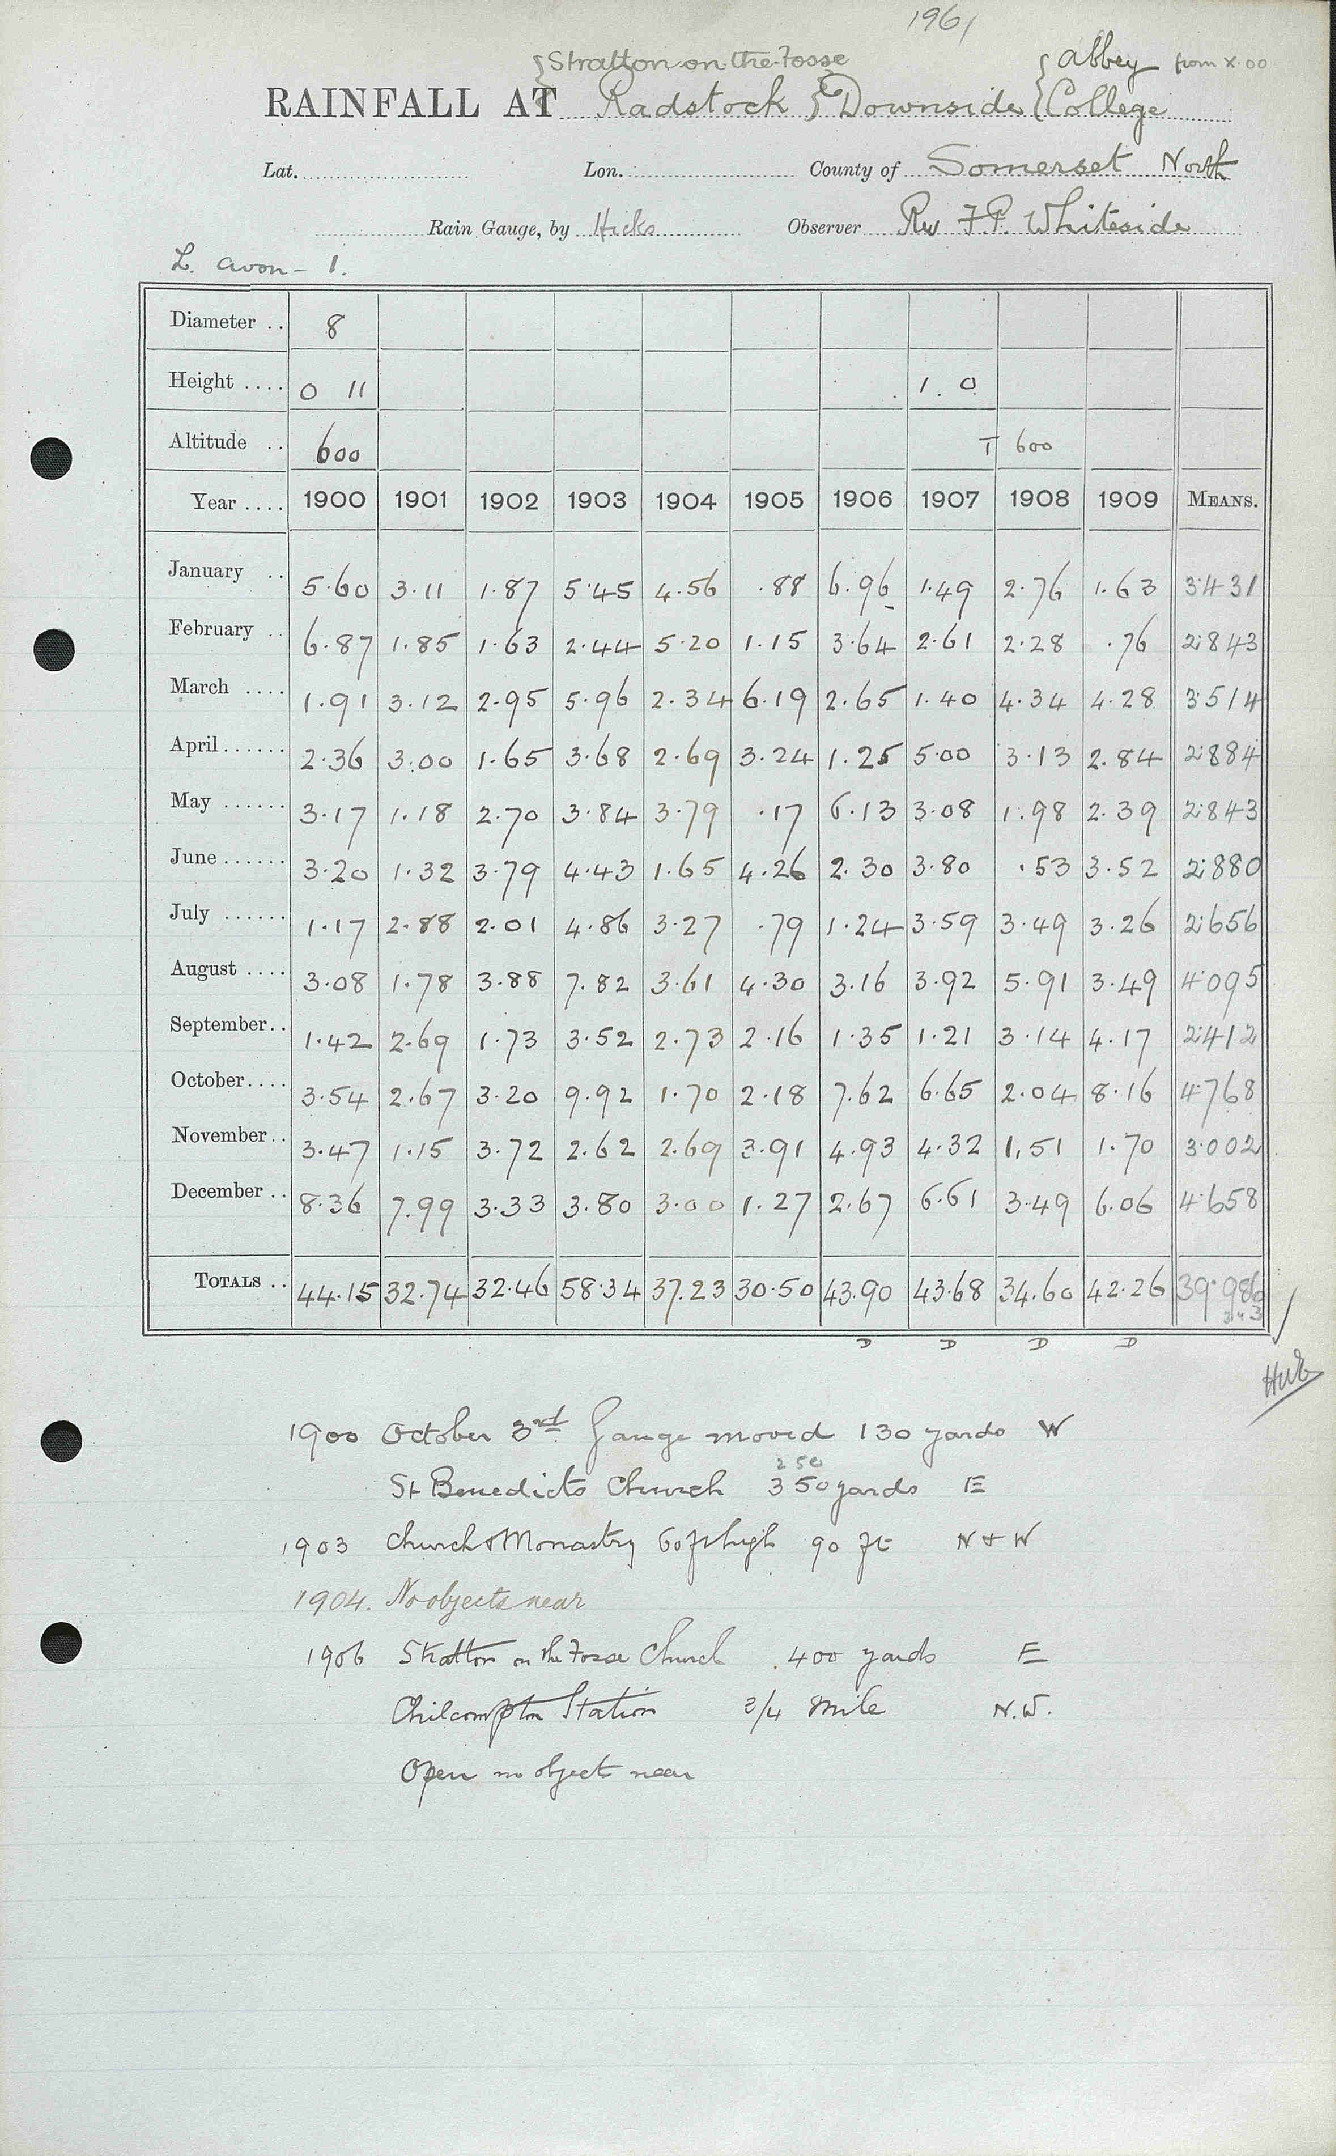 1961
{Stratton on the Fosse {Abbey from X.00
RAINFALL AT Radstock } Downside {College
Lat. Lon. County of Somerset North
Rain Gauge, by Hicks Observer Rev F.P. Whiteside
L. Avon - 1.
Diameter .. 8
Height .... 0 11 1. 0
Altitude .. 600 T 600
Year .... 1900 1901 1902 1903 1904 1905 1906 1907 1908 1909 MEANS.
January .. 5.60 3.11 1.87 5.45 4.56 .88 6.96 1.49 2.76 1.63 3.431
February .. 6.87 1.85 1.63 2.44 5.20 1.15 3.64 2.61 2.28 .76 2.843
March .... 1.91 3.12 2.95 5.96 2.34 6.19 2.65 1.40 4.34 4.28 3.514
April ...... 2.36 3.00 1.65 3.68 2.69 3.24 1.25 5.00 3.13 2.84 2.884
May ...... 3.17 1.18 2.70 3.84 3.79 .17 6.13 3.08 1.98 2.39 2.843
June ...... 3.20 1.32 3.79 4.43 1.65 4.26 2.30 3.80 .53 3.52 2.880
July ...... 1.17 2.88 2.01 4.86 3.27 .79 1.24 3.59 3.49 3.26 2.656
August .... 3.08 1.78 3.88 7.82 3.61 4.30 3.16 3.92 5.91 3.49 4.095
September.. 1.42 2.69 1.73 3.52 2.73 2.16 1.35 1.21 3.14 4.17 2.412
October.... 3.54 2.67 3.20 9.92 1.70 2.18 7.62 6.65 2.04 8.16 4.768
November.. 3.47 1.15 3.72 2.62 2.69 3.91 4.93 4.32 1.51 1.70 3.002
December .. 8.36 7.99 3.33 3.80 3.00 1.27 2.67 6.61 3.49 6.06 4.658
TOTALS .. 44.15 32.74 32.46 58.34 37.23 30.50 43.90 43.68 34.60 42.26 39.986
D D D D
1900 October 3rd Gauge moved 130 yards W
250
St Benedicts Church 350 yards E
1903 Church & Monastry 60 ft high 90 ft N & W
1904. No objects near
1906 Stratton on the Fosse Church 400 yards E
Chilcompton Station 3/4 mile N.W.
Open no object near